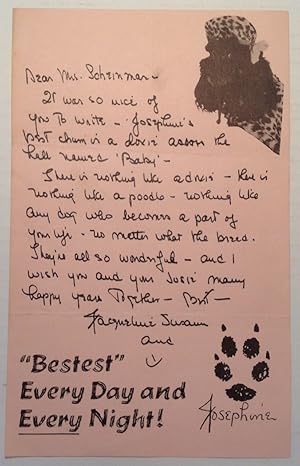 Dear Mrs. Scheinman -
It was so nice of
you to write - Josephine's
best chum is a doxie across the
hall named 'Baby' -
There is nothing like a doxie - there is
nothing like a poodle - nothing like
any dog who becomes a part of
your life - no matter what the breed.
They're all so wonderful - and I
wish you and your doxie many
happy years together - Best -
Jacqueline Susann
and
"Bestest"
Every Day and
Every Night!
Josephine